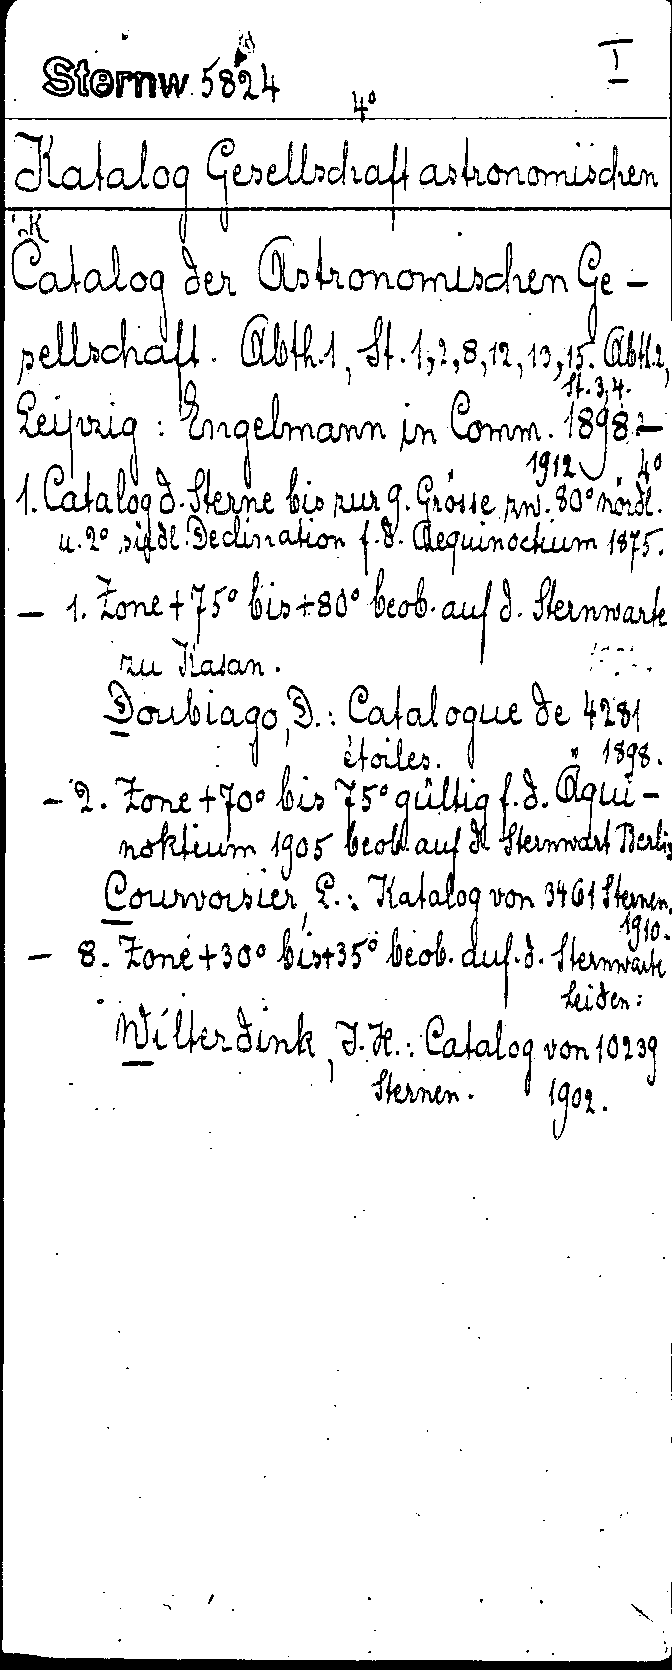 Sternw. 5824 I
4°
Katalog Gesellschaft astronomischen
K
Catalog der Astronomischen Ge-
sellschaft. Abth.1, St.1,2,8,12,13,15. Abth.2,
St. 3,4.
Leipzig: Engelmann in Comm. 1898-
1912 4°
1. Catalog d. Sterne bis zur 9. Grösse zw. 80° nördl.
u. 2° südl. Declination f. d. Aequinoctium 1875.
- 1. Zone +75° bis +80° beob. auf d. Sternwarte
zu Kasan.
Doubiago, D.: Catalogue de 4281
étoiles. 1898.
- 2. Zone +70° bis 75° gültig f. d. Äqui-
noktium 1905 beob. auf d. Sternwart Berlin
Courvoisier, L.: Katalog von 3461 Sternen,
1910.
- 8. Zone +30° bis +35° beob. auf. d. Sternwarte
Leiden:
Wilterdink, J. H.: Catalog von 10239
Sternen. 1902.